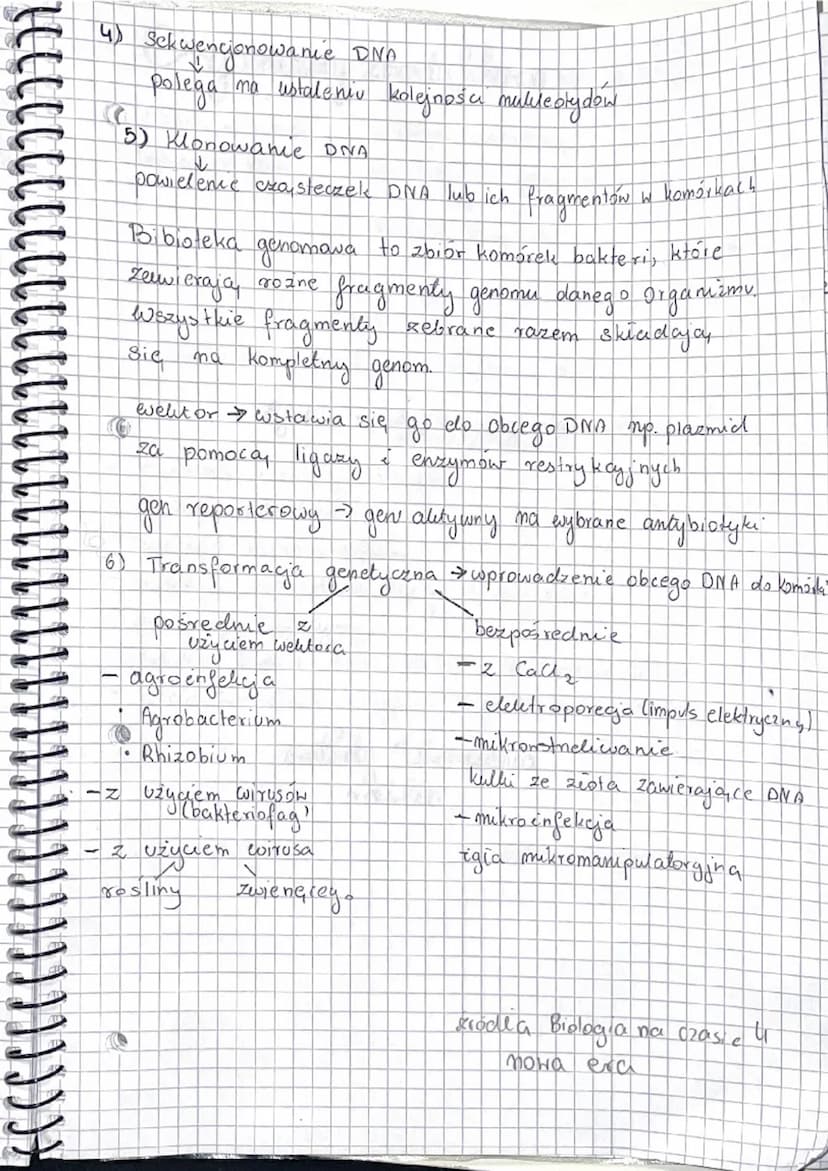 4) Sekwencjonowanie DNA
↓
polega na ustaleniu kolejności nukleotydów
5) Klonowanie DNA
↓
powielenie cząsteczek DNA lub ich fragmentów w komórkach
Bibioteka genomowa to zbiór komórek bakterii, które
zawierają różne fragmenty genomu danego organizmu.
Wszystkie fragmenty zebrane razem składają
się na kompletny genom.
wektor → wstawia się go do obcego DNA np. plazmid
za pomocą ligazy i enzymów restrykcyjnych
gen reporterowy → gen aktywny na wybrane antybiotyki
6) Transformacja genetyczna → wprowadzenie obcego DNA do komórki
pośrednie z
użyciem wektora
- agroinfekcja
• Agrobacterium
• Rhizobium
- z użyciem wirusów
(bakteriofag)
- z użyciem wirusa
rośliny zwierzęcego
bezpośrednie
- z CaCl₂
- elektroporacja (impuls elektryczny)
- mikrowstrzeliwanie
kulki ze złota zawierające DNA
- mikroinfekcja
igła mikromanipulatoryjna
źródła Biologia na czasie 4
nowa era